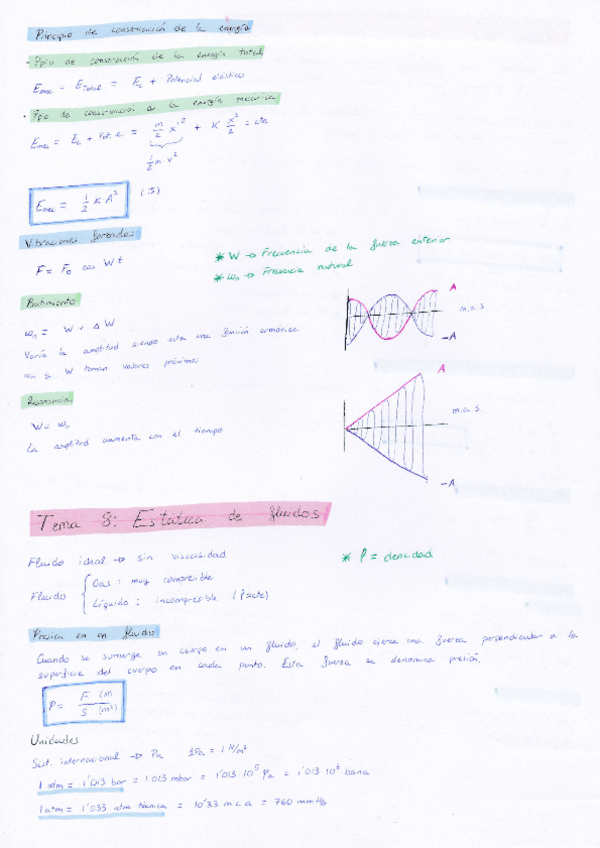 Principio de conservación de la energía
· Ppio de conservación de la energía total
Emec = Etotal = Ec + Potencial elástica
· Ppio de conservación de la energía mecánica
Emec = Ec + Pot. e. = m/2 x'² + K x²/2 = cte
1/2 m v²
Emec = 1/2 K A² (J)
Vibraciones forzadas
F = F₀ cos Wt
* W → Frecuencia de la fuerza exterior
* wₙ → Frecuencia natural
Batimiento
wₙ = W + ΔW
Varía la amplitud siendo esta una función armónica
wₙ y W toman valores próximos
A
m.a.s.
-A
Resonancia
W = wₙ
La amplitud aumenta con el tiempo
A
m.a.s.
-A
Tema 8: Estática de fluidos
Fluido ideal → sin viscosidad
* ρ = densidad
Fluido { Gas: muy compresible
Líquido: incompresible (ρ=cte)
Presión en un fluido
Cuando se sumerge un cuerpo en un fluido, el fluido ejerce una fuerza perpendicular a la
superficie del cuerpo en cada punto. Esta fuerza se denomina presión.
P = F (N) / S (m²)
Unidades
Sist. internacional → Pa 1Pa = 1 N/m²
1 atm = 1'013 bar = 1013 mbar = 1'013·10⁵ Pa = 1'013·10⁶ baria
1 atm = 1'033 atm técnica = 10'33 m c a = 760 mmHg